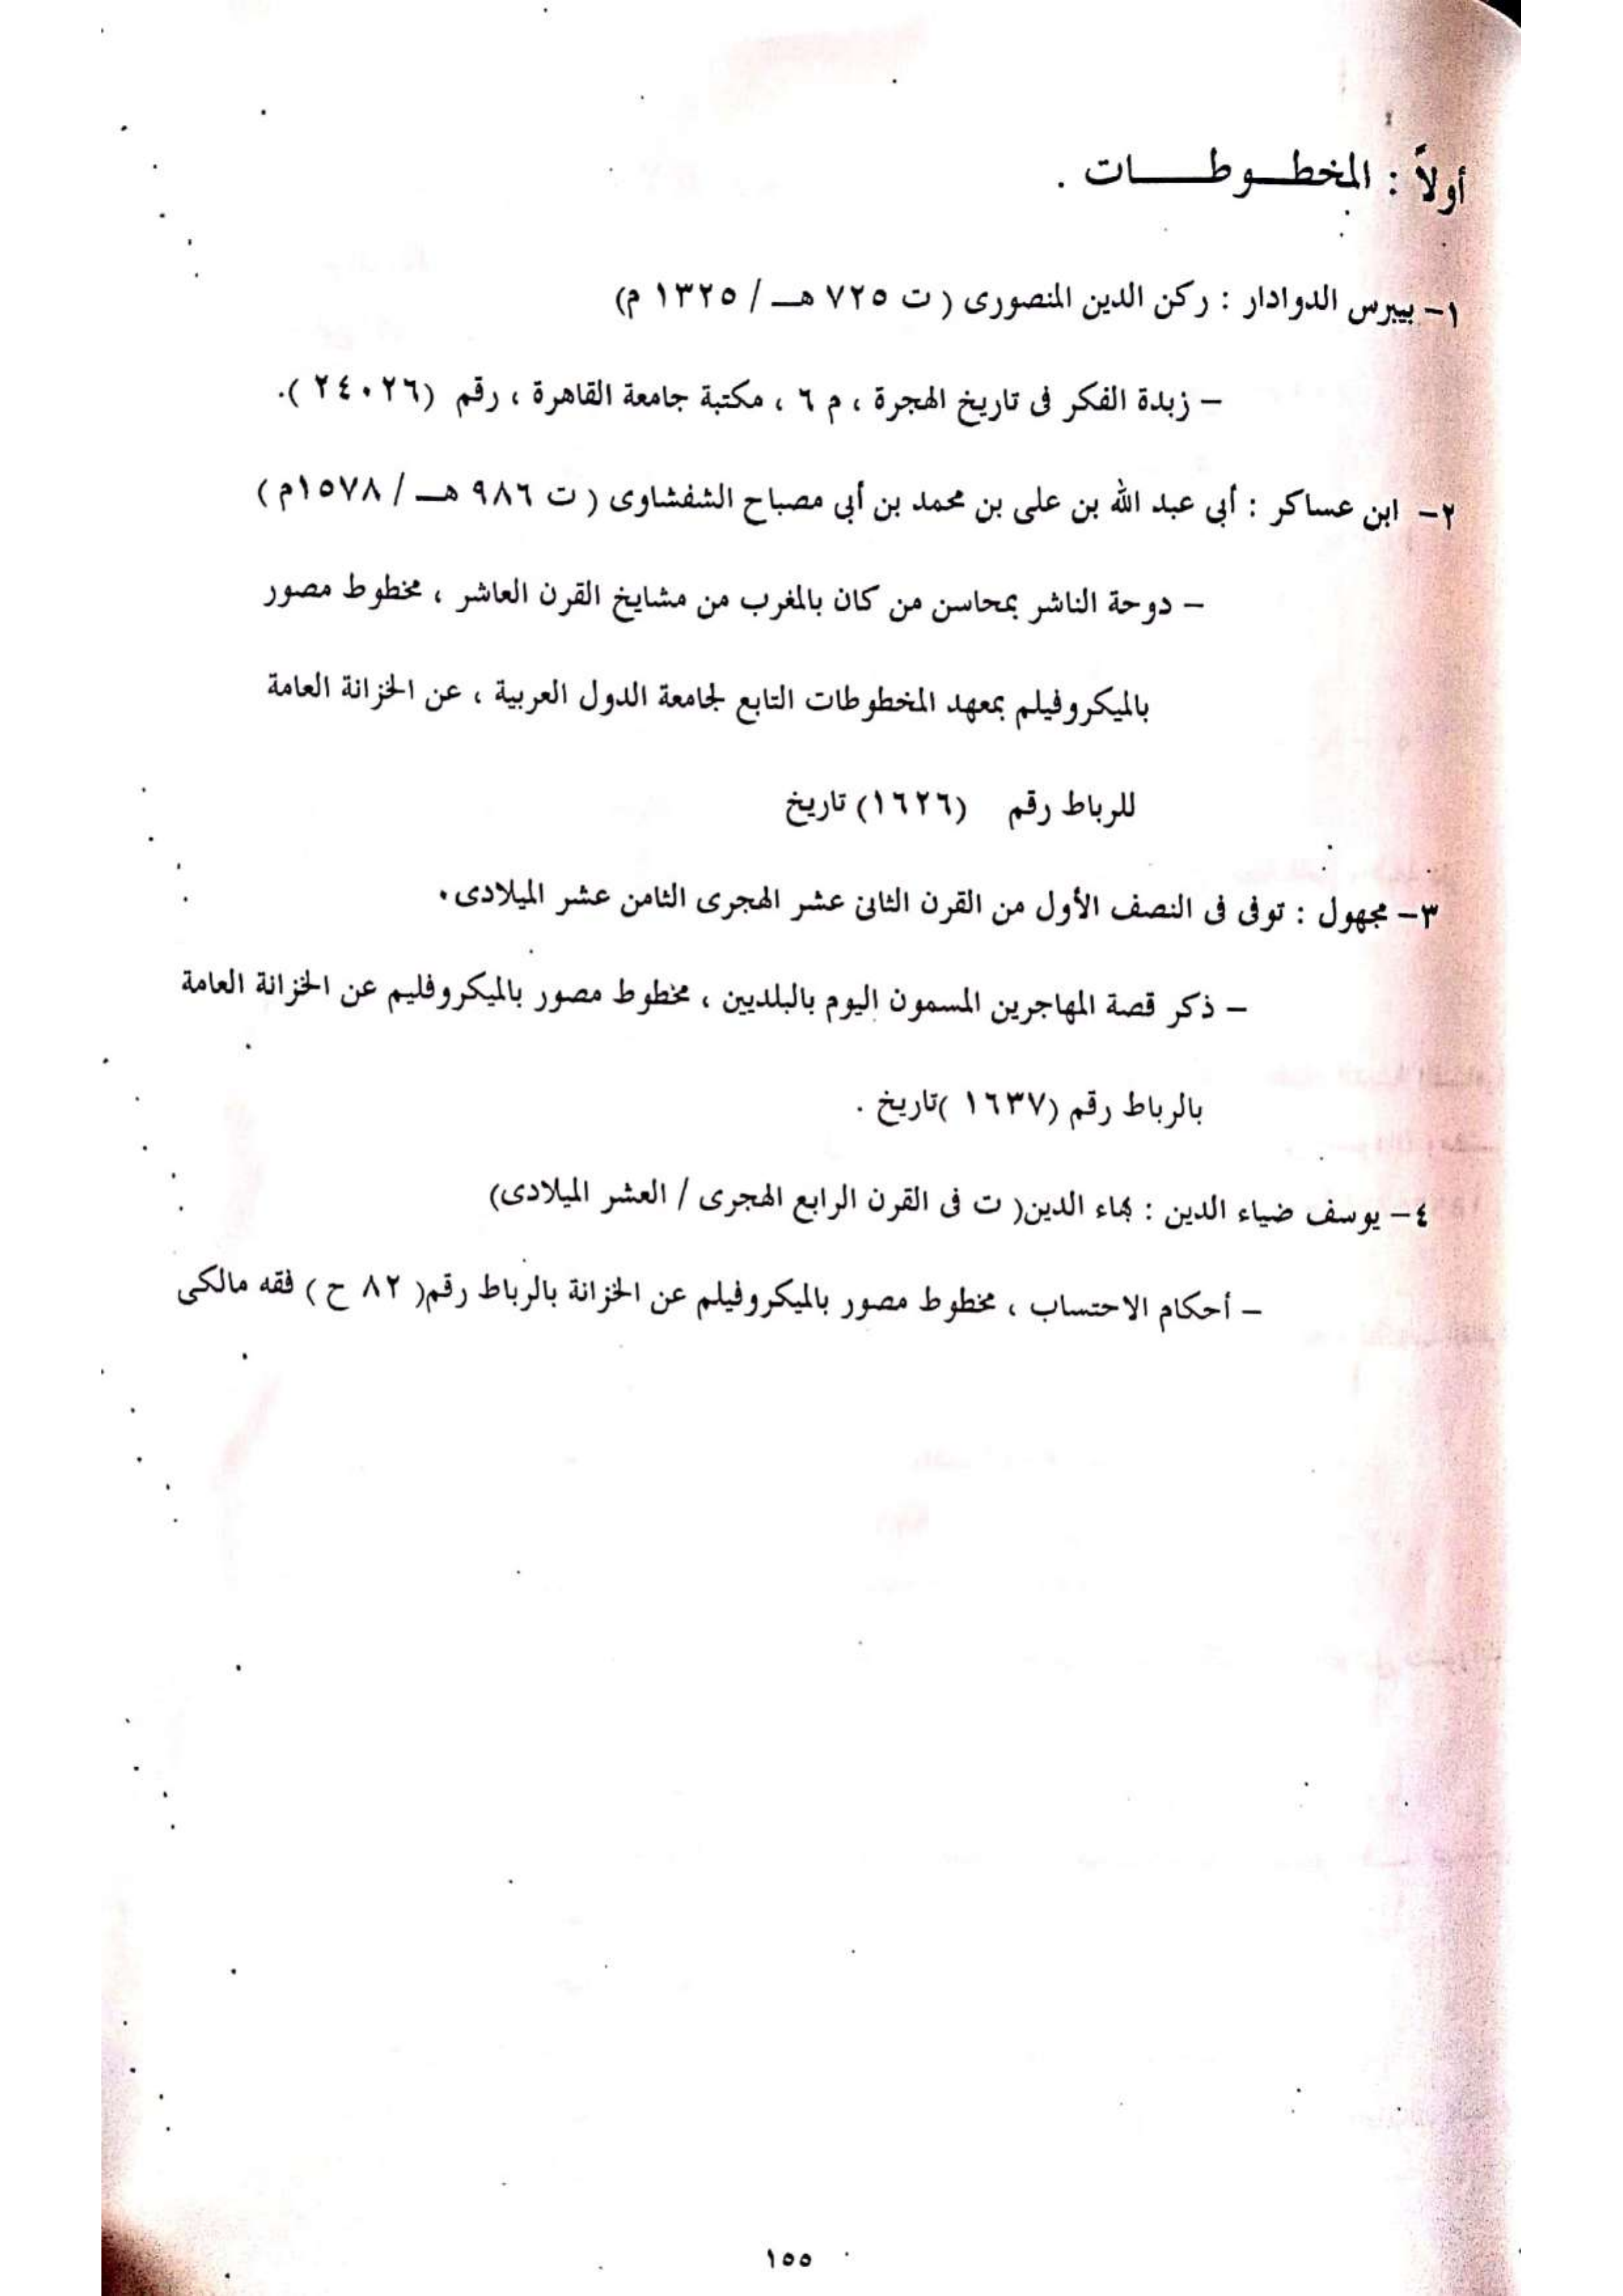 أولاً : المخطـوطـــات .
١– بيبرس الدوادار : ركن الدين المنصورى ( ت ٧٢٥ هـــ / ١٣٢٥ م)
– زبدة الفكر فى تاريخ الهجرة ، م ٦ ، مكتبة جامعة القاهرة ، رقم (٢٤٠٢٦ ).
٢– ابن عساكر : أبى عبد الله بن على بن محمد بن أبى مصباح الشفشاوى ( ت ٩٨٦ هـــ / ١٥٧٨م )
– دوحة الناشر بمحاسن من كان بالمغرب من مشايخ القرن العاشر ، مخطوط مصور
بالميكروفيلم بمعهد المخطوطات التابع لجامعة الدول العربية ، عن الخزانة العامة
للرباط رقم (١٦٢٦) تاريخ
٣– مجهول : توفى فى النصف الأول من القرن الثانى عشر الهجرى الثامن عشر الميلادى.
– ذكر قصة المهاجرين المسمون اليوم بالبلديين ، مخطوط مصور بالميكروفليم عن الخزانة العامة
بالرباط رقم (١٦٣٧ )تاريخ .
٤– يوسف ضياء الدين : بهاء الدين( ت فى القرن الرابع الهجرى / العشر الميلادى)
– أحكام الاحتساب ، مخطوط مصور بالميكروفيلم عن الخزانة بالرباط رقم( ٨٢ ح ) فقه مالكى
١٥٥